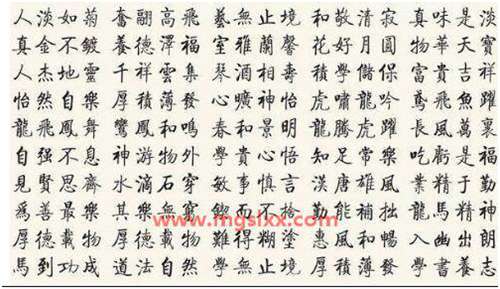 人淡如菊 奮翮高飛 藝無止境 和敬清寂 真味是淡
真金不鍍 養德澤福 室雅蘭馨 花好月圓 物華天寶
人杰地靈 千祥雲集 琴酒相壽 積學儲保 富貴吉祥
怡然自樂 厚積薄發 心曠神怡 虎嘯龍吟 鳶飛魚躍
龍飛鳳舞 鸞鳳和鳴 春和景明 龍騰虎躍 長風萬裏
自强不息 神游物外 學貴心悟 知足常樂 吃虧是福
見賢思齊 水滴石穿 敏事慎言 漢唐雄風 業精于勤
為善最樂 其樂無窮 而不捨 勤能補拙 龍馬精神
www.mgslxx.com
厚德載物 厚德載物 難得糊塗 惠風和暢 入幽出朗
馬到功成 道法自然 學無止境 厚積薄發 學書養志